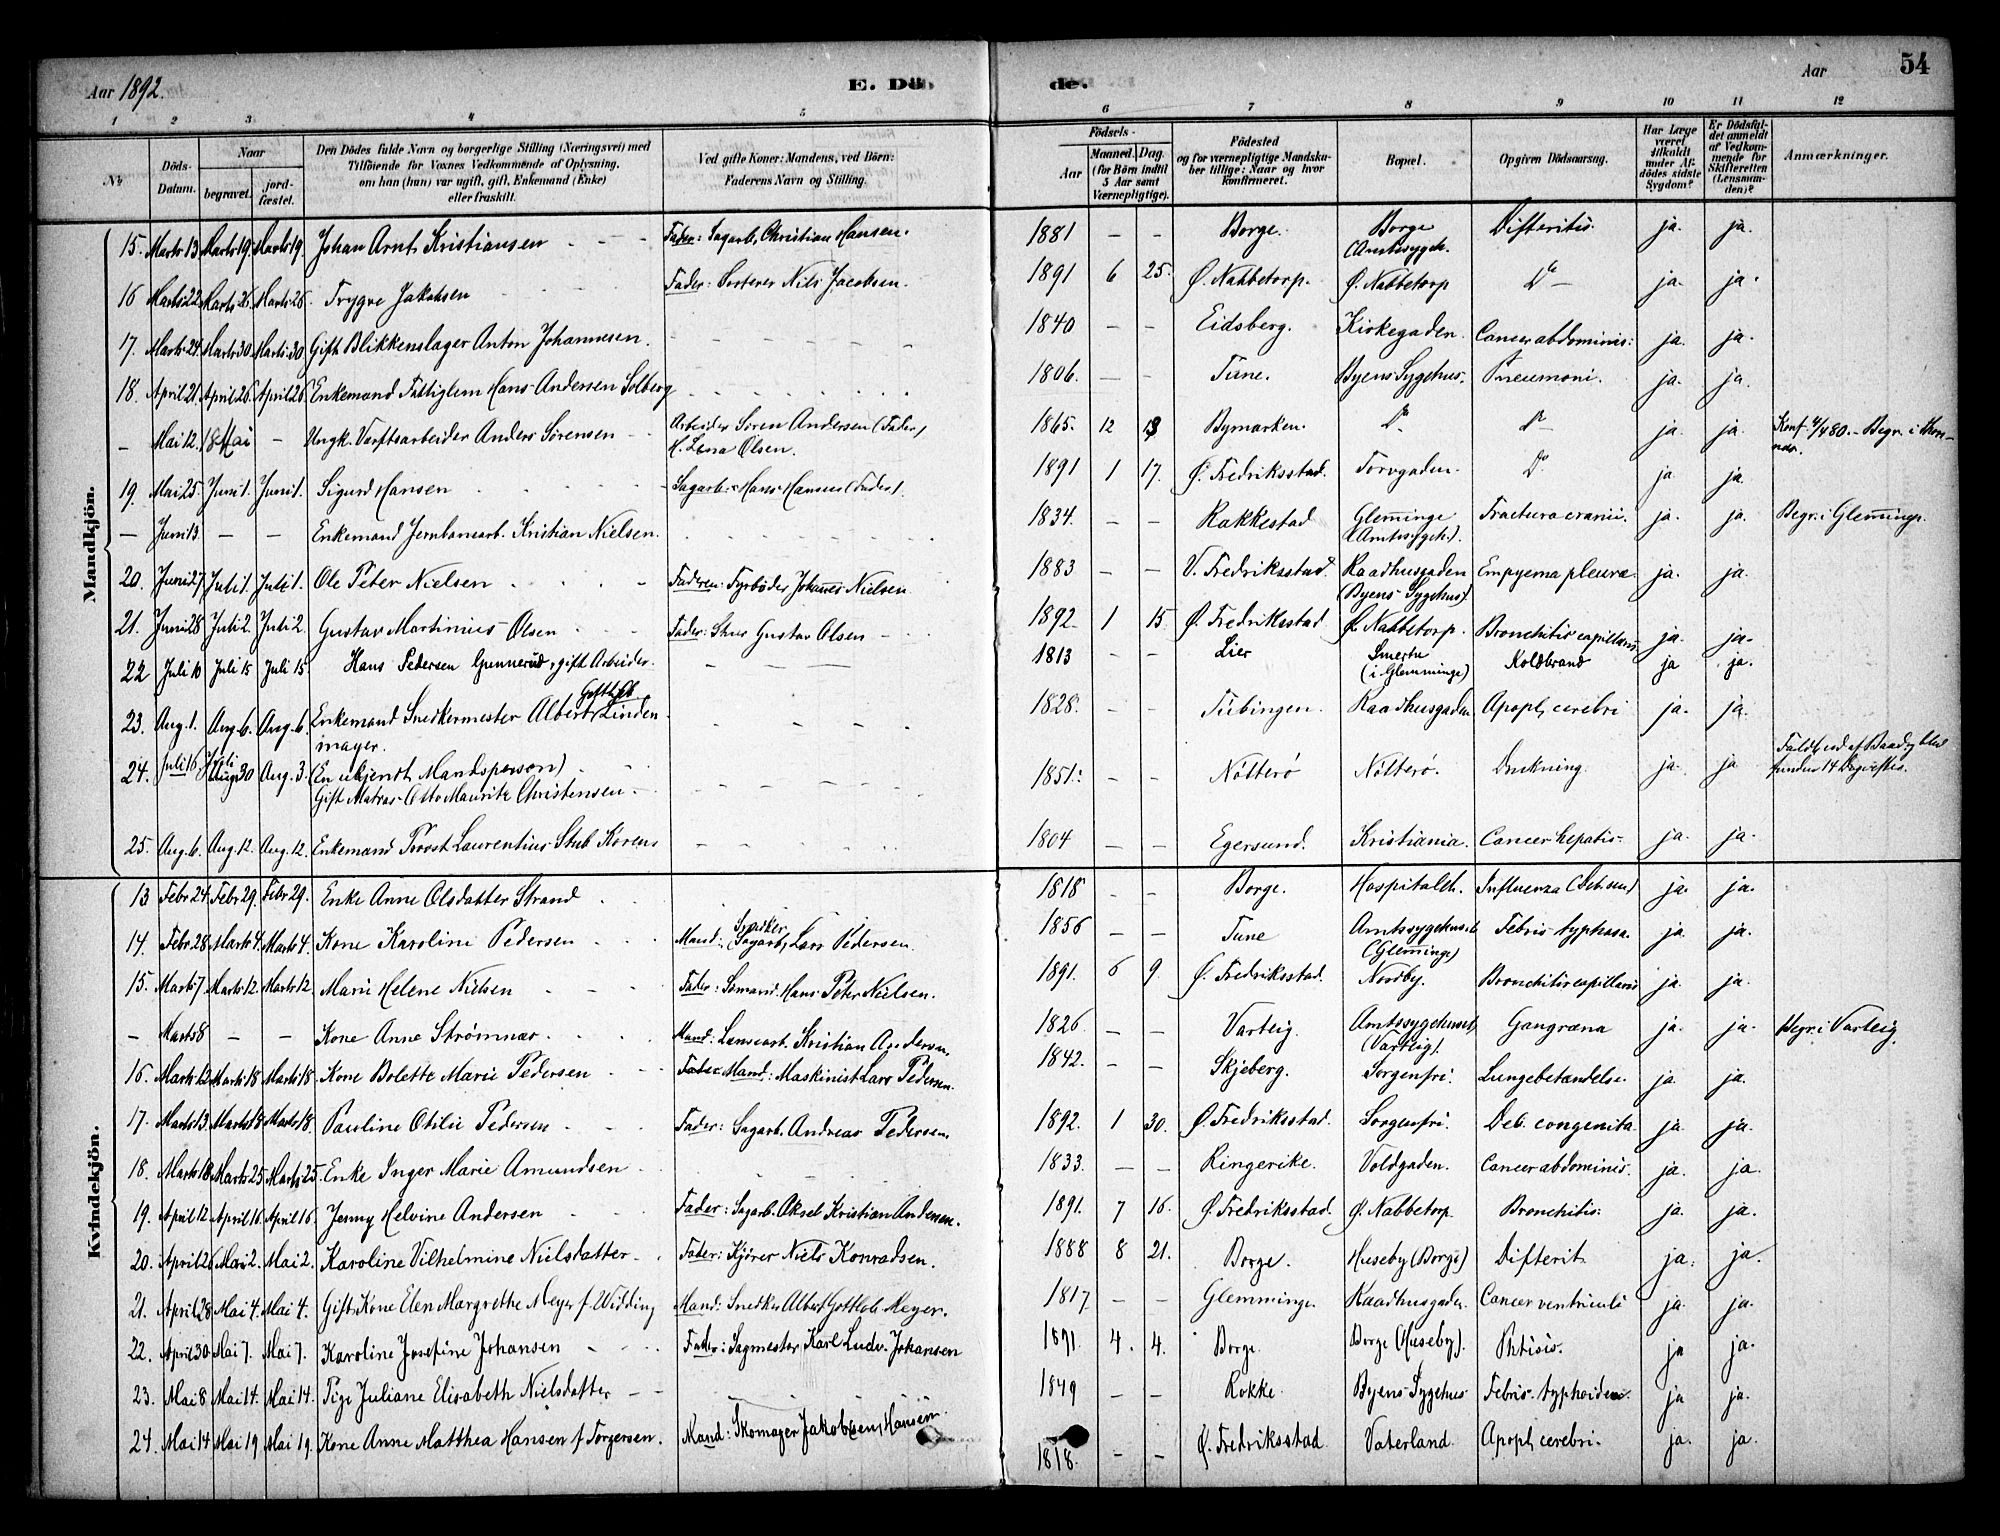 Aar 1892.
E. Dö-
de.
Aar
54
1 2 3 4 5 6 7 8 9 10 11 12
№
Döds-Datum.
Naar
begravet.
jord-fæstet.
Den Dödes fulde Navn og borgerlige Stilling (Næringsvei) med
Tilföiende for Voxnes Vedkommende af Oplysning,
om han (hun) var ugift, gift, Enkemand (Enke)
eller fraskilt.
Ved gifte Koner: Mandens, ved Börn:
Faderens Navn og Stilling.
Födsels-
Aar
Maaned. Dag.
(for Börn indtil
5 Aar samt
Værnepligtige).
Födested
og for værnepligtige Mandska-
ber tillige: Naar og hvor
konfirmeret.
Bopæl.
Opgiven Dödsaarsag.
Har Læge
været
tilkaldt
under Af-
dödes sidste
Sygdom?
Er Dödsfal-
det anmeldt
af Vedkom-
mende for
Skifteretten
(Lensman-
den)?
Anmærkninger.
Mandkjön.
15. Marts 13 Marts 19. Marts 19. Johan Arnt Kristiansen - - - Fader: Sagarb. Christian Hansen. 1881 - - Borge. Borge (Amtssygeh. Difteritis. ja. ja.
16 Marts 22. Marts 26. Marts 26. Trygve Jakobsen Fader: Sorterer Nils Jacobsen. 1891 6 25. Ø. Nabbetorp. Ø. Nabbetorp Do - ja. ja.
17. Marts 24. Marts 30. Marts 30 Gift Blikkenslager Anton Johannesen. 1840 - - Eidsberg. Kirkegaden. Cancer abdominis. ja. ja.
18. April 21. April 26. April 26. Enkemand Fattiglem Hans Andersen Solberg 1806. - - Tune. Byens Sygehus. Pneumoni. ja. ja.
- Mai 12. 18 Mai - Ungk. Værftsarbeider Anders Sörensen - - Arbeider Sören Andersen (Fader) 1865. 12 13 Bymarken. Do Do ja. ja. Konf. 4/4 80. - Begr. i
H. Lena Olsen.
19. Mai 25. Juni 1. Juni 1. Sigurd Hansen Sagarb. Hans Hansen (Fader). 1891 1 17. Ø. Fredriksstad. Torvgaden. Do ja ja.
- Juni 13. - - Enkemand Jernbanearb. Kristian Nielsen. 1834. - - Rakkestad Glemminge (Amtssygeh.). Fractura cranii. ja. ja. Begr. i Glemminge.
20. Juni 27 Juli 1. Juli 1. Ole Peter Nielsen Faderen: Fyrböder Johannes Nielsen 1883 - - V. Fredriksstad. Raadhusgaden (Byens Sygehus). Empyema pleuræ. ja. ja.
21. Juni 28 Juli 2. Juli 2. Gustav Martinius Olsen Fader: Skus Gustav Olsen - 1892 1 15. Ø. Fredriksstad Ø. Nabbetorp. Bronchitis capillaris ja. ja.
22 Juli 10 Juli 15 Juli 15. Hans Pedersen Gunnerud, gift Arbeider. 1813 - - Lier Smertu (i Glemminge) Koldbrand ja ja.
23. Aug. 1. Aug. 6. Aug. 6. Enkemand Snedkermester Albert Gottlieb Linden 1828. - - Tübingen. Raadhusgaden. Apopl. cerebri ja. ja.
mayer.
24. Juli 16 Juli 30 Aug. 3. (En ukjendt Mandsperson) 1851. - - Nötterö Nötterö. Drukning. ja. ja Faldt ud af Baad, blev
Gift Matros Otto Mauritz Christensen funden 14 Dage efter.
25. Aug. 6. Aug. 12. Aug. 12. Enkemand Provst Laurentius Stub Koren 1804 - - Egersund. Kristiania. Cancer hepatis. ja. ja.
Kvindekjön.
13 Febr 24. Febr 29. Febr 29. Enke Anne Olsdatter Strand 1818 - - Borge. Hospitalet. Influenza (Deb. sen) ja. ja.
14. Febr. 28. Marts 4. Marts 4. Kone Karoline Pedersen Mand: Snedker Sagarb. Lars Pedersen. 1856 - - Tune Amtssygehuset (Glemminge) Febris typhosa. ja ja.
15. Marts 7 Marts 12. Marts 12. Marie Helene Nielsen Fader: Sömand Hans Peter Nielsen. 1891. 6 9. Ø. Fredriksstad. Nordby. Bronchitis capillaris ja. ja.
- Marts 8 - - Kone Anne Strömnæs. Mand: Lænsearb. Kristian Andersen. 1826 - - Varteig. Amtssygehuset (Varteig). Gangræna ja. ja. Begr. i Varteig.
16. Marts 13. Marts 18 Marts 18 Kone Bolette Marie Pedersen Fader Mand: Maskinist Lars Pedersen. 1842. - - Skjeberg. Sorgenfri. Lungebetændelse. ja ja.
17. Marts 13. Marts 18 Marts 18. Pauline Otilie Pedersen Fader: Sagarb. Andreas Pedersen. 1892. 1 30. Ø. Fredriksstad. Sorgenfri. Deb. congenita. ja ja.
18. Marts 18 Marts 25 Marts 25. Enke Inger Marie Amundsen 1833. - - Ringerike. Voldgaden. Cancer abdominis. ja. ja.
19. April 12 April 16. April 16. Jenny Helvine Andersen Fader: Sagarb. Aksel Kristian Andersen. 1891. 7 16. Ø. Fredriksstad. Ø. Nabbetorp. Bronchitis. ja. ja.
20. April 26 Mai 2. Mai 2. Karoline Vilhelmine Nielsdatter Fader: Kjörer Niels Konradsen. 1888 8 21. Borge. Huseby (Borge) Difterit. ja. ja.
21. April 28 Mai 4. Mai 4. Gift Kone Elen Margrethe Meyer f. Widding Mand: Snedker Albert Gottlob Meyer. 1817 - - Glemminge Raadhusgaden. Cancer ventriculi ja. ja.
22. April 30 Mai 7. Mai 7. Karoline Josefine Johansen Fader: Sagmester Karl Ludv. Johansen 1891. 4. 4. Borge. Borge (Huseby). Phtisis. ja ja.
23. Mai 8 Mai 14. Mai 14. Pige Juliane Elisabeth Nielsdatter 1849 - - Rokke. Byens Sygehus Febris typhoidea. ja ja.
24. Mai 14 Mai 19 Mai 19. Kone Anne Matthea Hansen f. Torgersen. Mand: Skomager Jakob Hansen. 1818. - - Ø. Fredriksstad Vaterland. Apopl. cerebri. ja. ja.